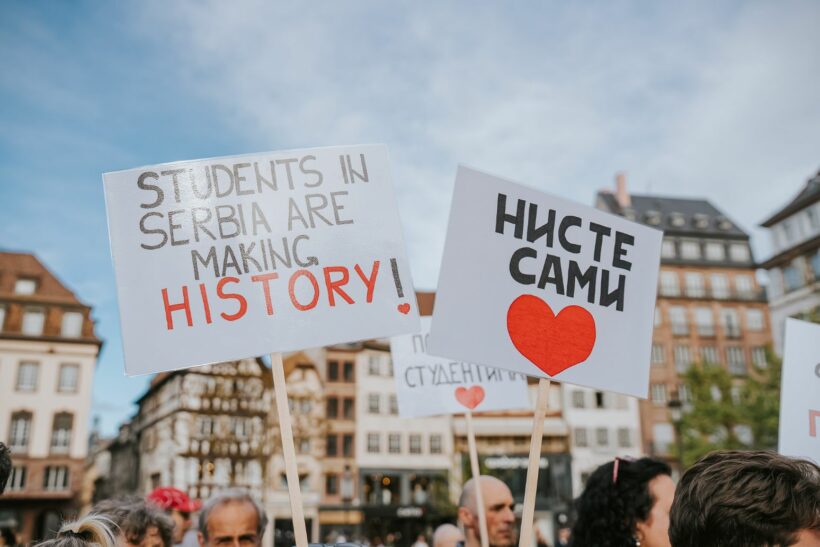 STUDENTS IN
SERBIA ARE
MAKING
HISTORY!
НИСТЕ
САМИ
СТУДЕНТИМА